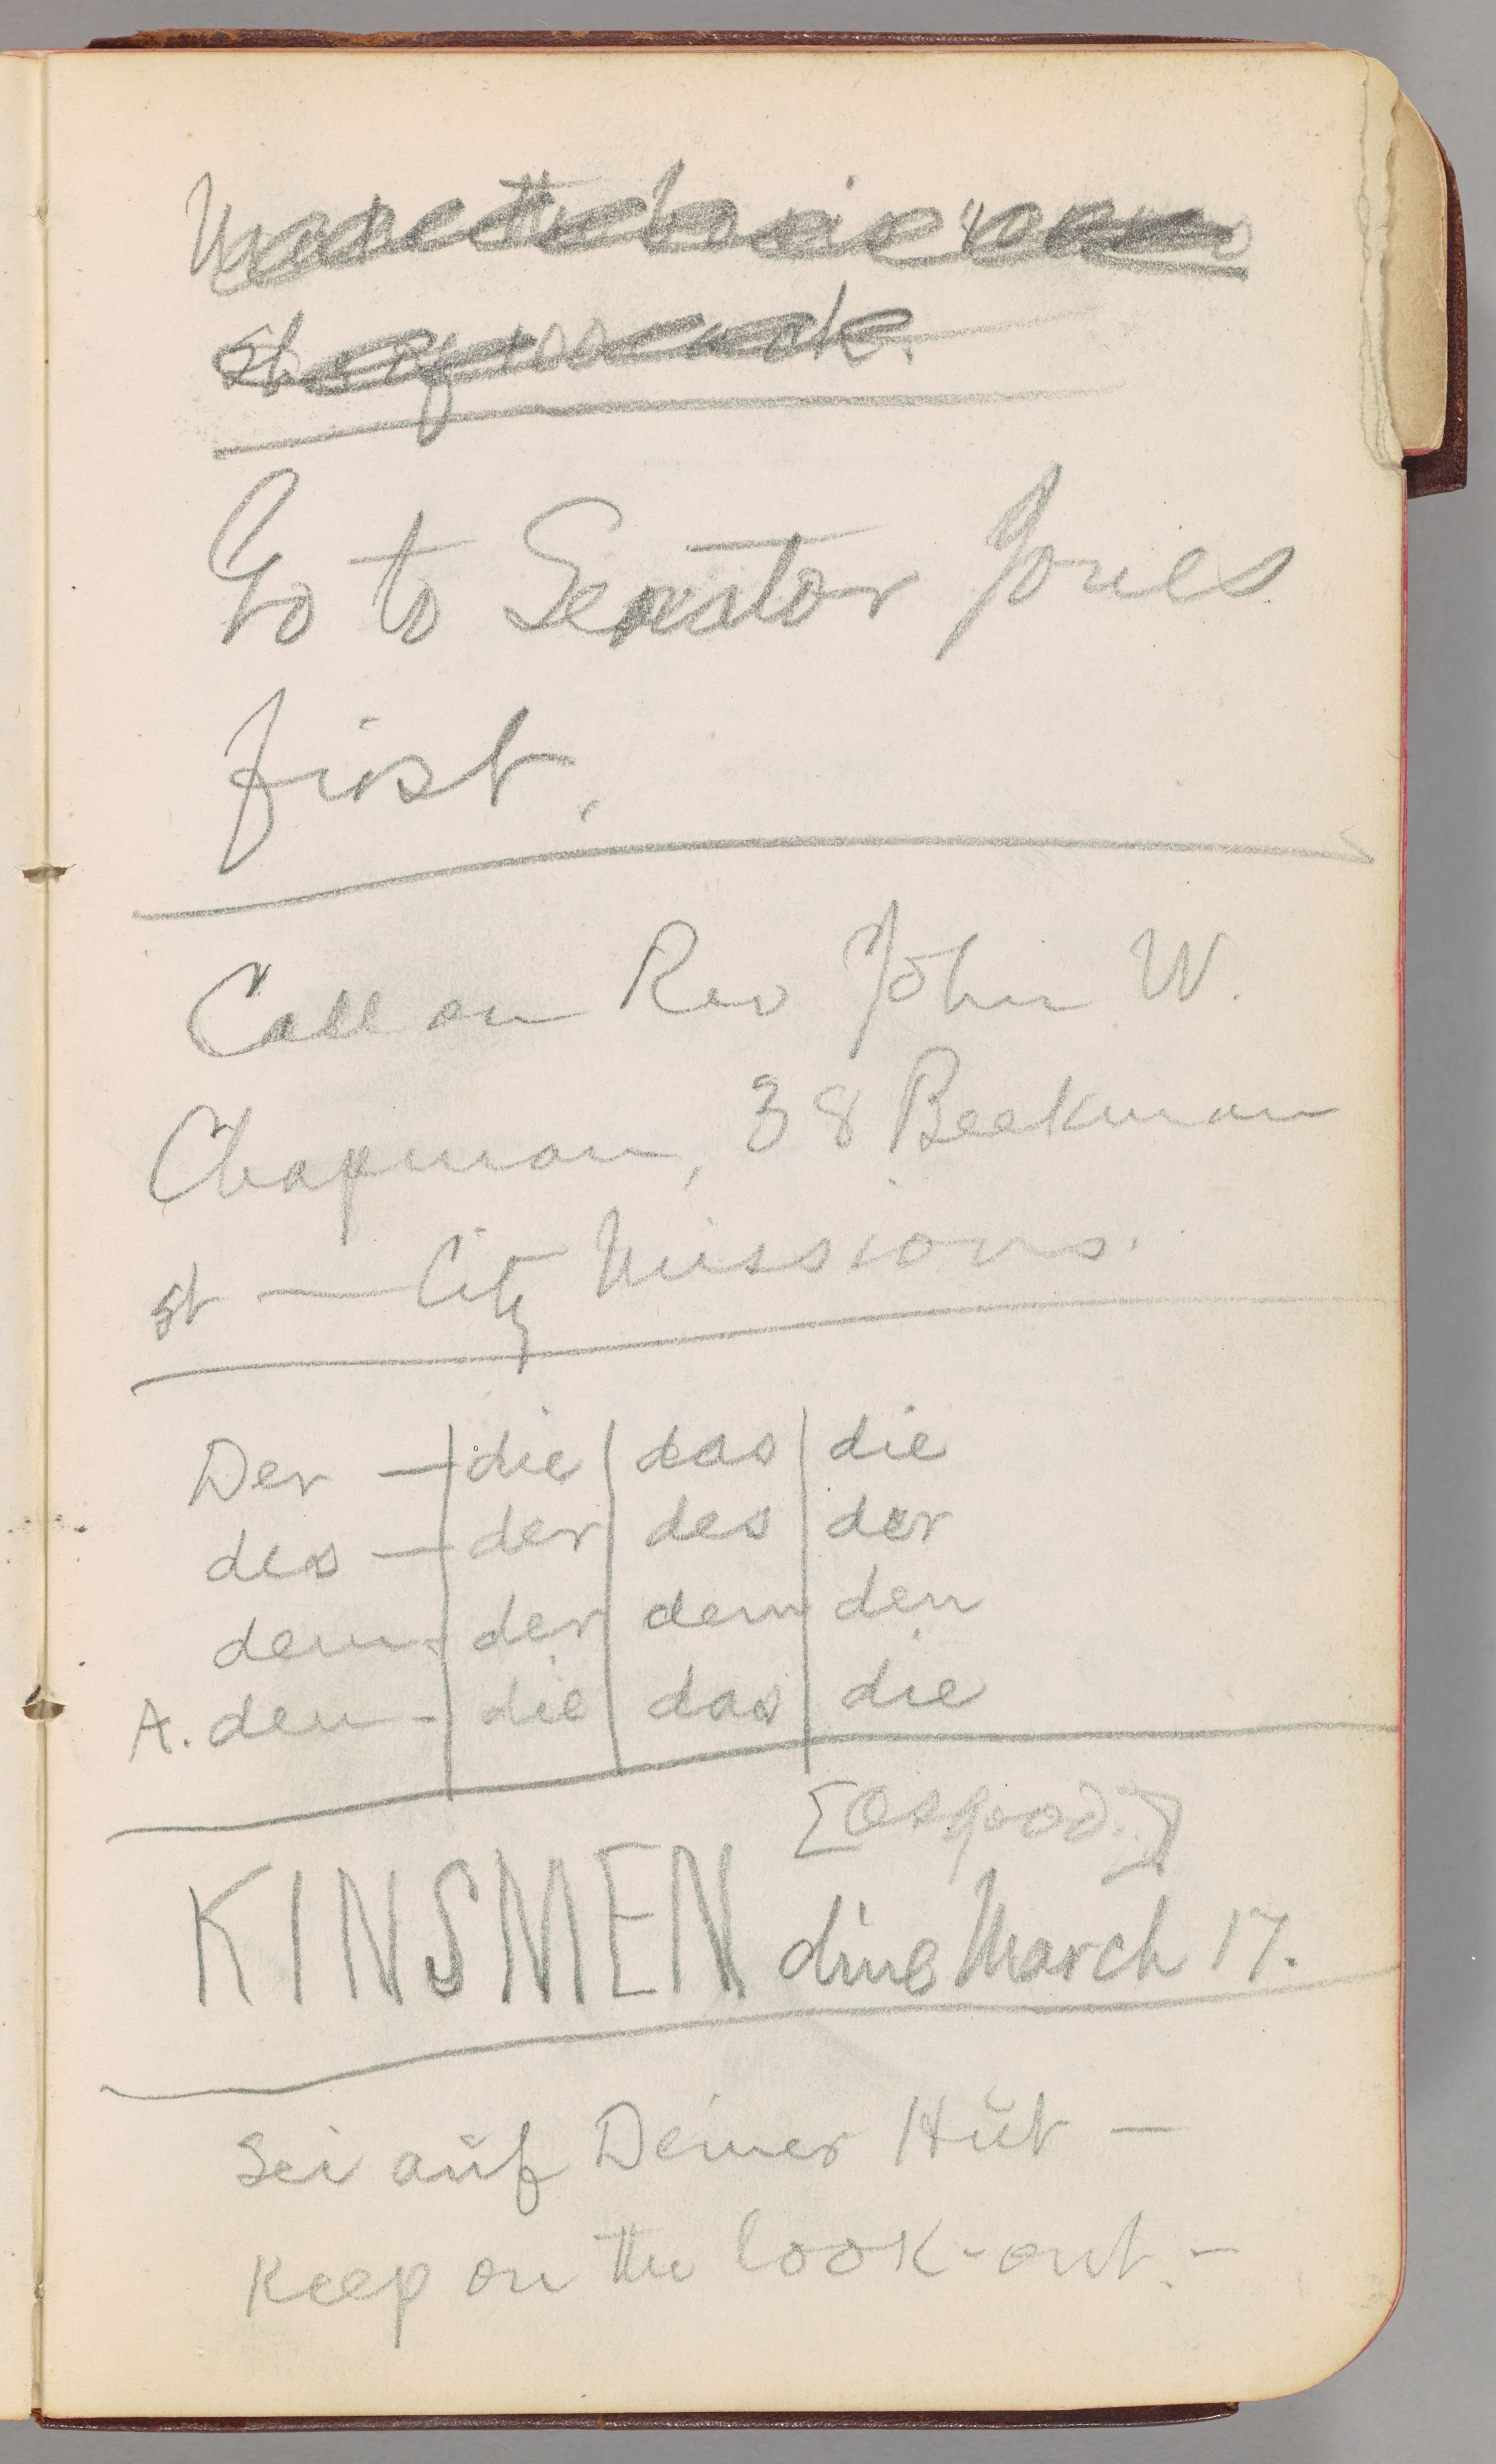 Go to Senator Jones
first.
Call on Rev John W.
Chapman, 38 Beekman
st — City Missions.
Der — die das die
des — der des der
dem - der dem den
A. den - die das die
[Osgood.]
KINSMEN dine March 17.
Sei auf Deiner Hut —
Keep on the look-out. -